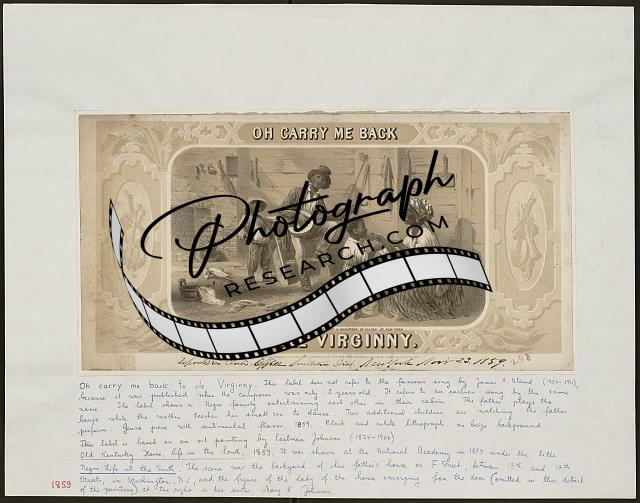 OH CARRY ME BACK
Photograph
RESEARCH.COM
VIRGINNY.
New York Nov 23. 1859.
298
Oh carry me back to ole Virginny. This label does not refer to the famous song by James A. Bland (1854-1911),
because it was published when the composer was only 5 years old. It refers to an earlier song by the same
name. The label shows a Negro family entertaining each other in their cabin. The father plays the
banjo while the mother teaches his small son to dance. Two additional children are watching the father
perform. Genre piece with sentimental flavor, 1859. Black and white lithograph on beige background.
This label is based on an oil painting by Eastman Johnson (1824-1906)
Old Kentucky Home, life in the South, 1859. It was shown at the National Academy in 1859 under the title
Negro Life at the South. The scene was the backyard of his father's house on F Street, between 13th and 14th
Streets, in Washington, D.C., and the figure of the lady of the house emerging from the door (omitted in this detail
of the painting) at the right is his sister, Mary K. Johnson.
1859